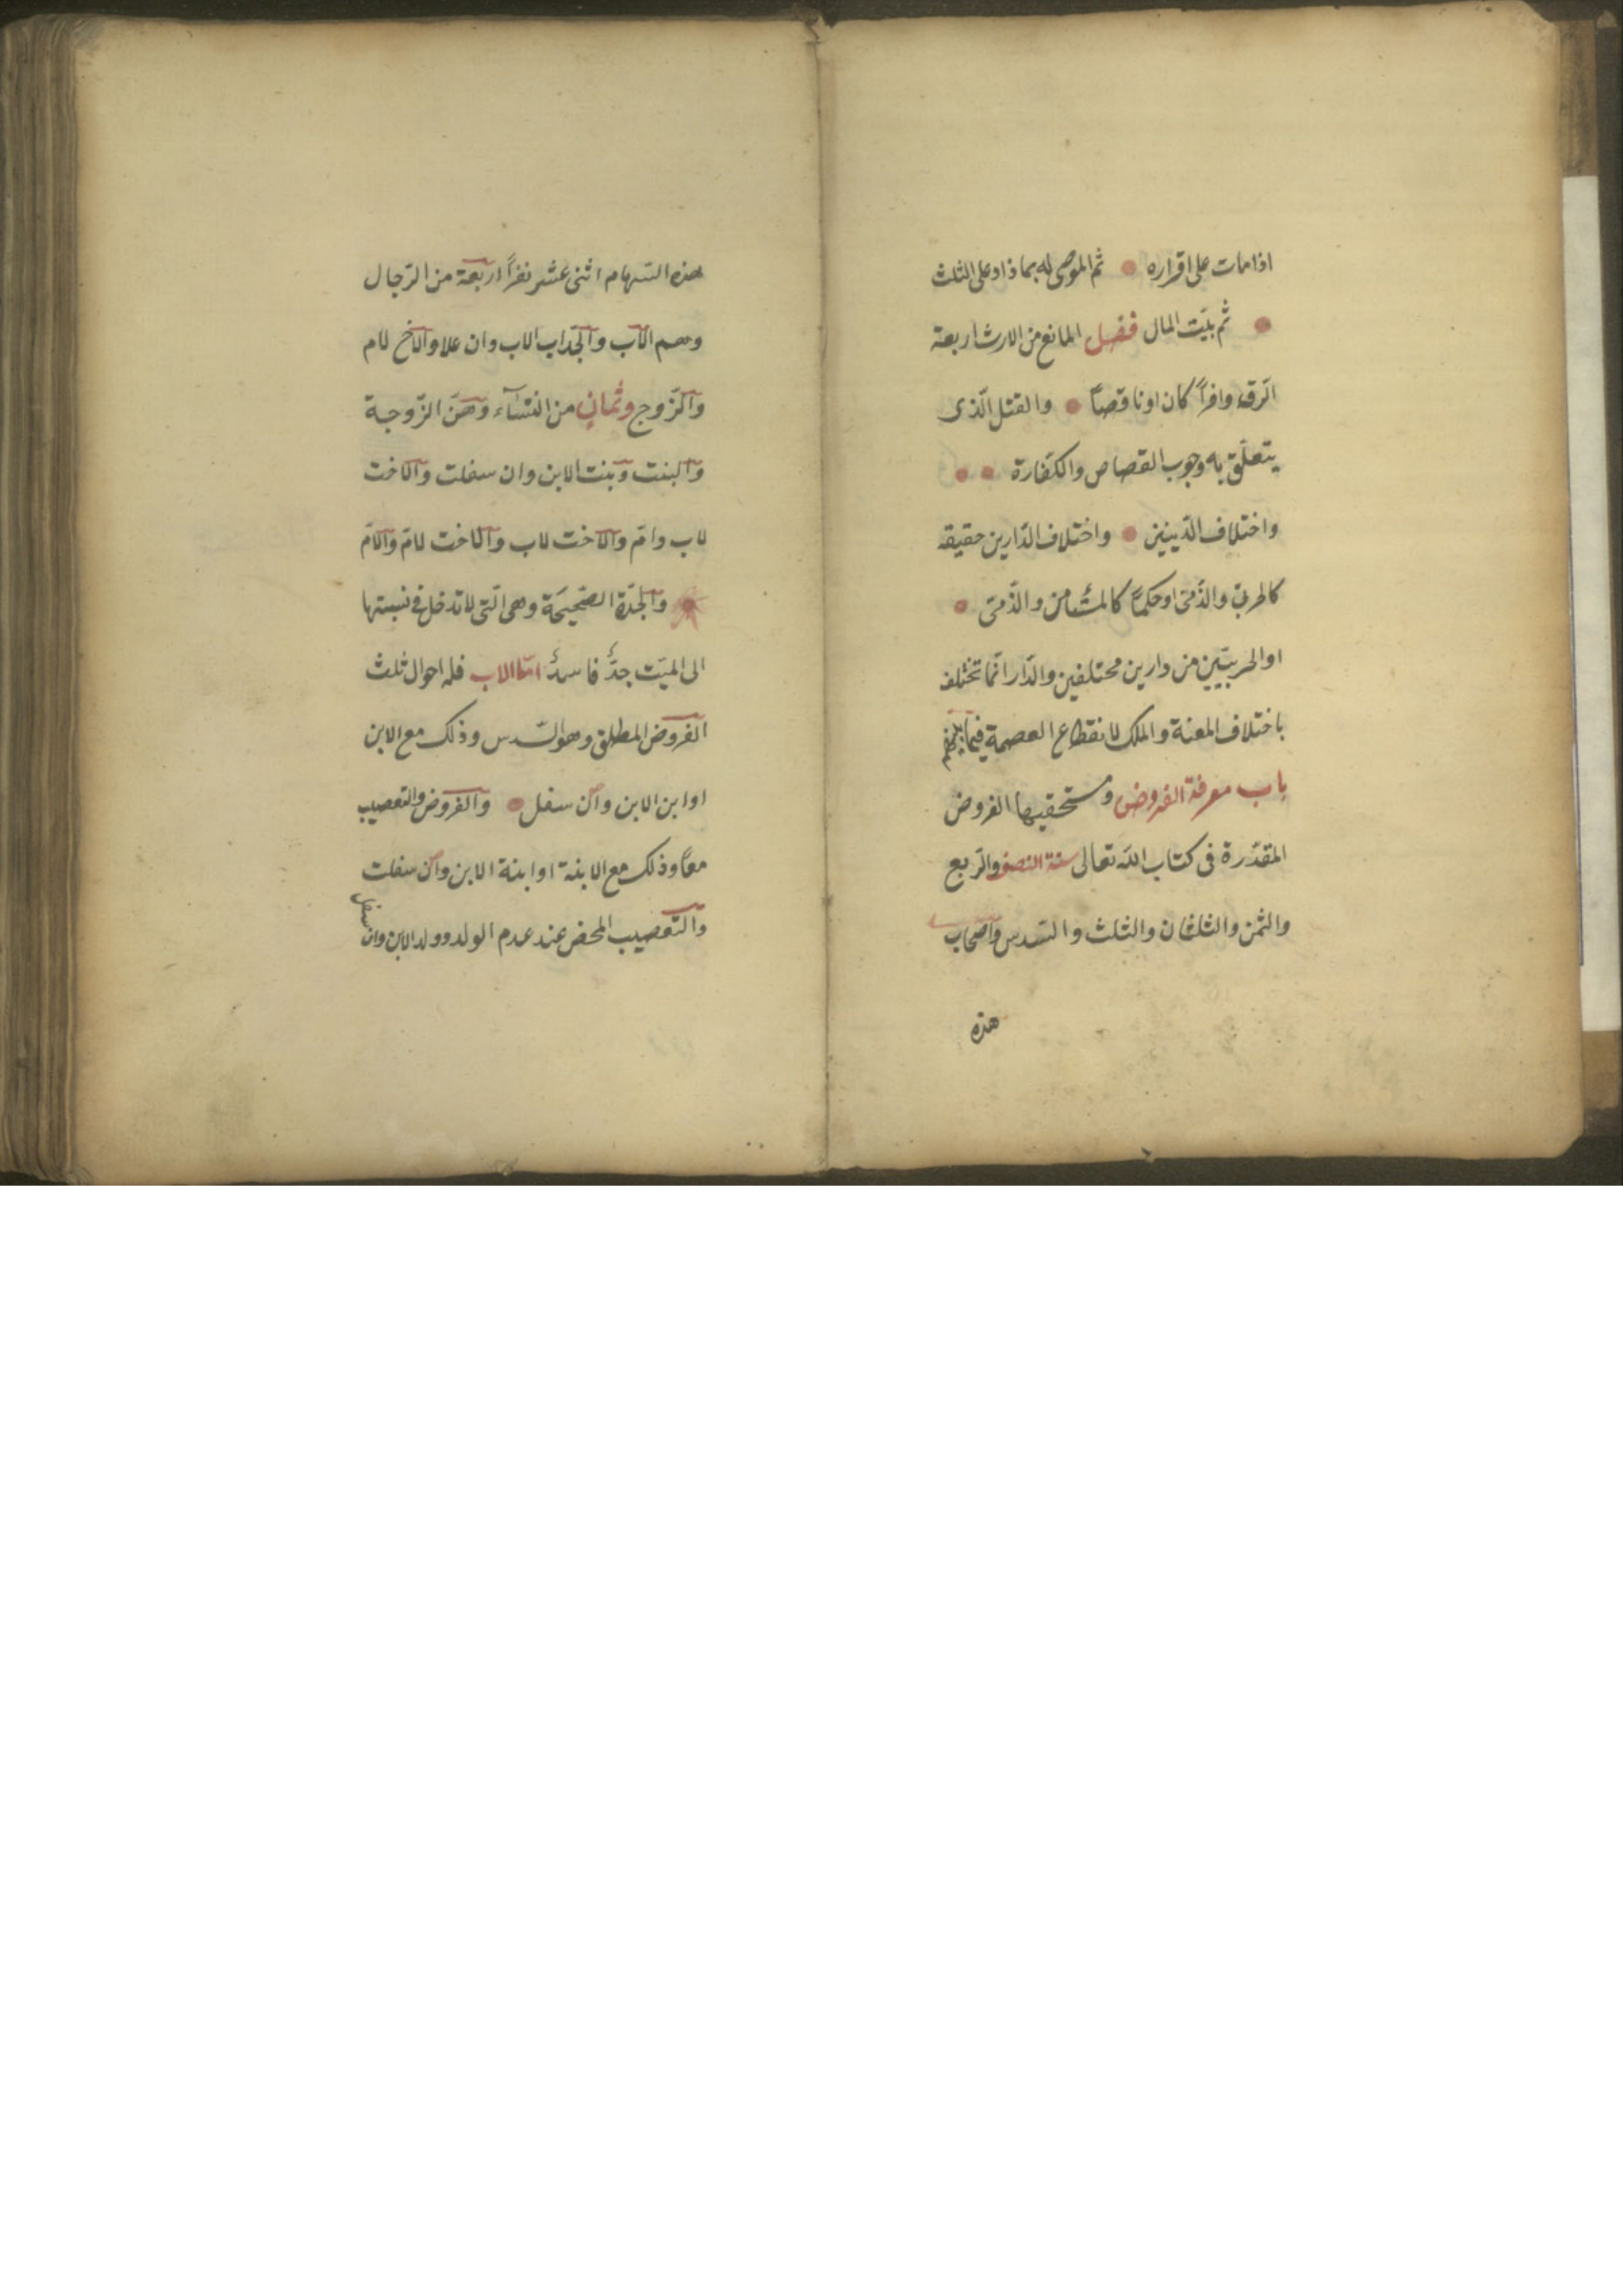 اذا مات على اقراره ثم الموصى له بما زاد على الثلث
ثم بيت المال فصل المانع من الارث اربعة
الرّق وافراً كان او ناقصاً والقتل الّذى
يتعلّق به وجوب القصاص والكفّارة
واختلاف الدّينين واختلاف الدّارين حقيقة
كالحربىّ والذّمّى او حكماً كالمستأمن والذّمّى
او الحربيّين من دارين مختلفين والدّار انّما تختلف
باختلاف المنعة والملك لانقطاع العصمة فيما بينهم
باب معرفة الفروض ومستحقيها الفروض
المقدّرة فى كتاب الله تعالى ستة النصف والرّبع
والثمن والثلثان والثلث والسّدس واصحاب
هذه
هذه السّهام اثنى عشر نفراً اربعة من الرّجال
وهم الاب والجّد اب الاب وان علا والاخ لام
والزّوج وثمانٍ من النّسآء وهنّ الزّوجة
والبنت وبنت الابن وان سفلت والاخت
لاب وامّ والاخت لاب والاخت لامّ والامّ
والجدّة الصّحيحَة وهى الّتى لا تدخل فى نسبتها
الى الميّت جدٌّ فاسدٌ امّا الاب فله احوال ثلث
الفروض المطلق وهو السّدس وذلك مع الابن
او ابن الابن وان سفل والفروض والتعصيب
معاً وذلك مع الابنة او ابنة الابن وان سفلت
والتّعصيب المحض عند عدم الولد وولد الابن وان
سفل